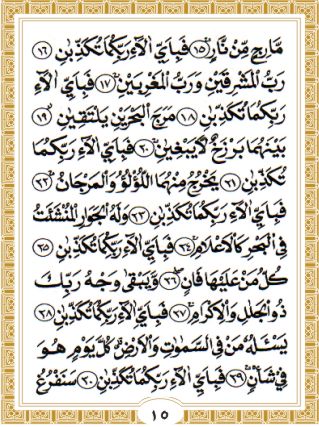 مَّارِجٍ مِّنْ نَّارٍ ﴿۱۵﴾ فَبِاَيِّ اٰلَآءِ رَبِّكُمَا تُكَذِّبٰنِ ﴿۱۶﴾
رَبُّ الْمَشْرِقَيْنِ وَرَبُّ الْمَغْرِبَيْنِ ﴿۱۷﴾ فَبِاَيِّ اٰلَآءِ
رَبِّكُمَا تُكَذِّبٰنِ ﴿۱۸﴾ مَرَجَ الْبَحْرَيْنِ يَلْتَقِيٰنِ ﴿۱۹﴾
بَيْنَهُمَا بَرْزَخٌ لَّا يَبْغِيٰنِ ﴿۲۰﴾ فَبِاَيِّ اٰلَآءِ رَبِّكُمَا
تُكَذِّبٰنِ ﴿۲۱﴾ يَخْرُجُ مِنْهُمَا اللُّؤْلُؤُ وَالْمَرْجَانُ ﴿۲۲﴾
فَبِاَيِّ اٰلَآءِ رَبِّكُمَا تُكَذِّبٰنِ ﴿۲۳﴾ وَلَهُ الْجَوَارِ الْمُنْشَئٰتُ
فِي الْبَحْرِ كَالْاَعْلَامِ ﴿۲۴﴾ فَبِاَيِّ اٰلَآءِ رَبِّكُمَا تُكَذِّبٰنِ ﴿۲۵﴾
كُلُّ مَنْ عَلَيْهَا فَانٍ ﴿۲۶﴾ وَّيَبْقٰى وَجْهُ رَبِّكَ
ذُو الْجَلٰلِ وَالْاِكْرَامِ ﴿۲۷﴾ فَبِاَيِّ اٰلَآءِ رَبِّكُمَا تُكَذِّبٰنِ ﴿۲۸﴾
يَسْئَلُهٗ مَنْ فِي السَّمٰوٰتِ وَالْاَرْضِ كُلَّ يَوْمٍ هُوَ
فِيْ شَاْنٍ ﴿۲۹﴾ فَبِاَيِّ اٰلَآءِ رَبِّكُمَا تُكَذِّبٰنِ ﴿۳۰﴾ سَنَفْرُغُ
۱۵